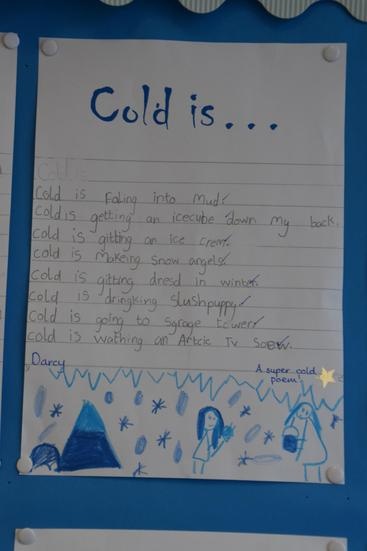 Cold is...
Cold is
Cold is Faling into Mud
Cold is getting an icecube down my back.
cold is gitting an ice crem
cold is Makeing snow angels
cold is gitting dresd in winter
cold is dringking slushpuppy
cold is going to Sgrage tower
cold is wathing an Artcic Tv Soew.
Darcy
A super cold
poem!